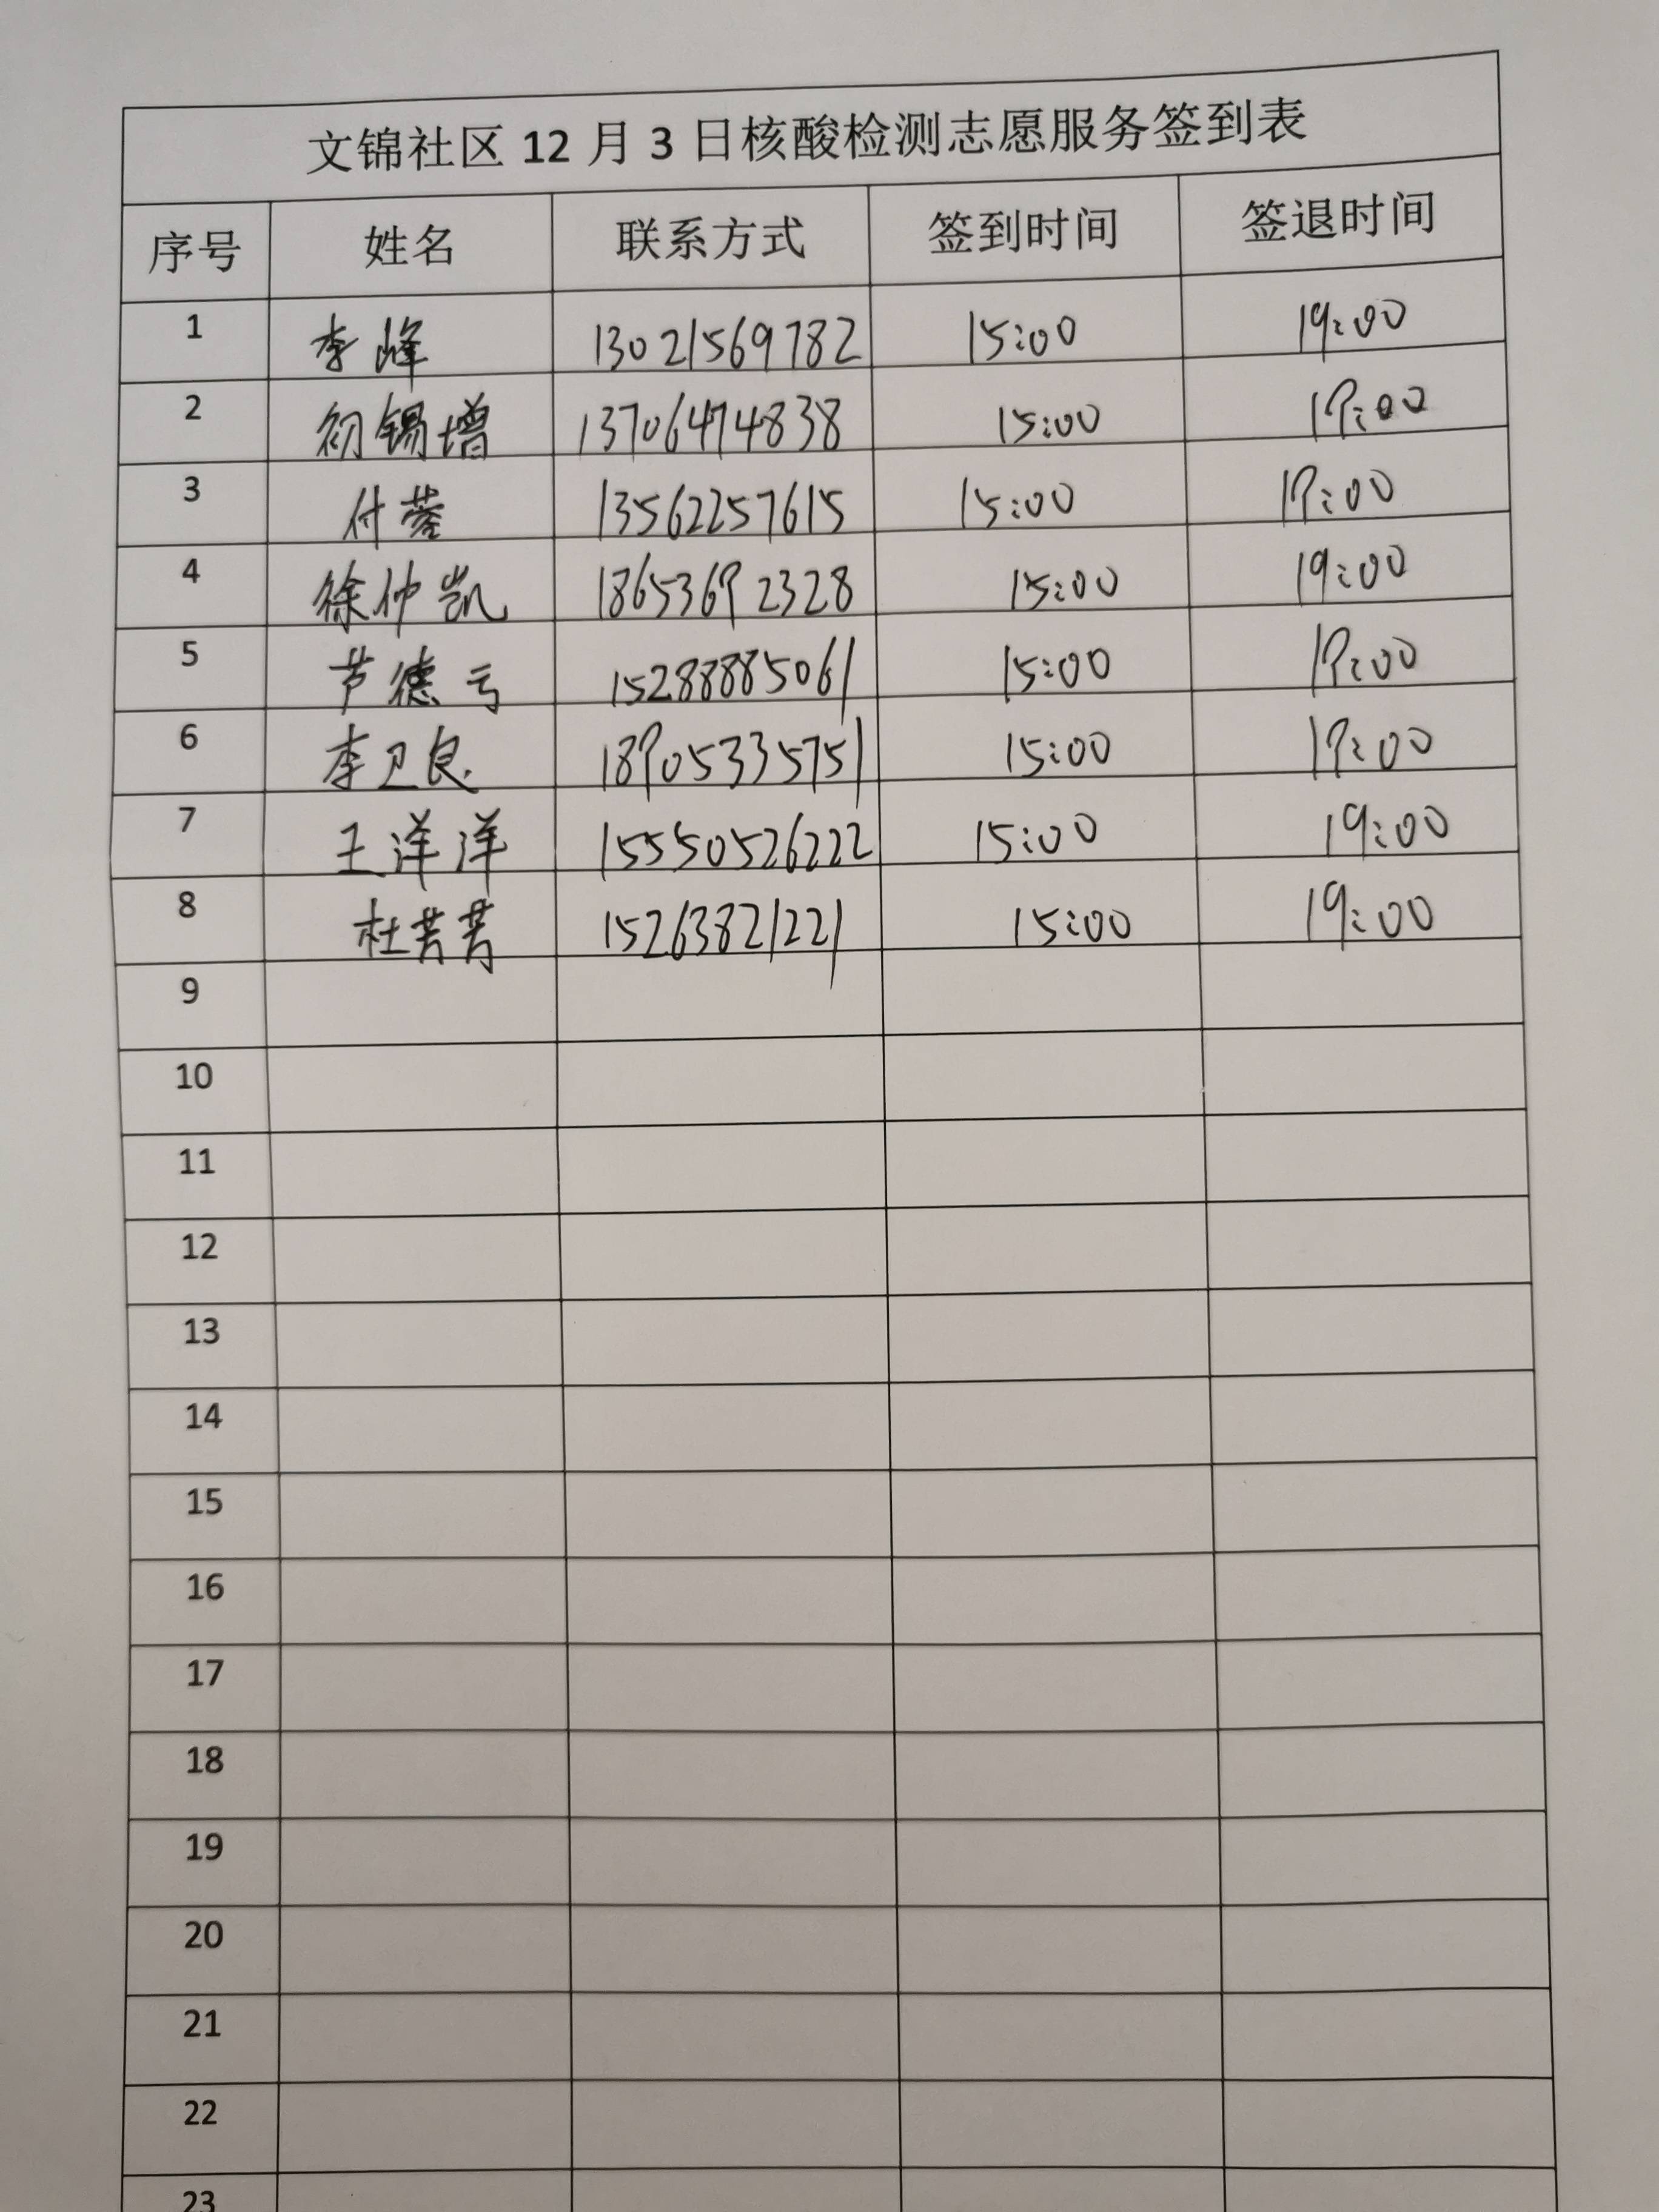 文锦社区 12 月 3 日核酸检测志愿服务签到表
序号 姓名 联系方式 签到时间 签退时间
1 李峰 13021569782 15:00 19:00
2 初锡增 13706474838 15:00 19:00
3 付蓉 13562257615 15:00 19:00
4 徐仲凯 18653692328 15:00 19:00
5 芦德亏 15288885061 15:00 19:00
6 李卫良 18905335751 15:00 19:00
7 王洋洋 15550526222 15:00 19:00
8 杜菁菁 15263821221 15:00 19:00
9
10
11
12
13
14
15
16
17
18
19
20
21
22
23